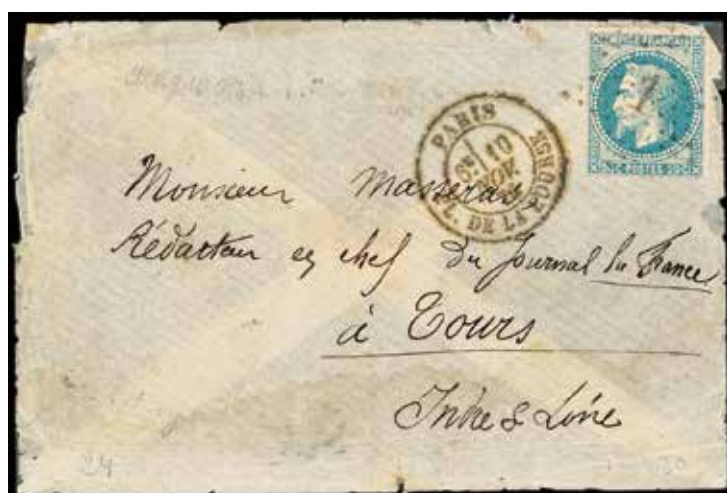 PARIS
6E
10
NOV
PL. DE LA BOURSE
1
POSTES
Monsieur Masseras,
Rédacteur en chef du Journal la France
à Tours
Indre & Loire
24